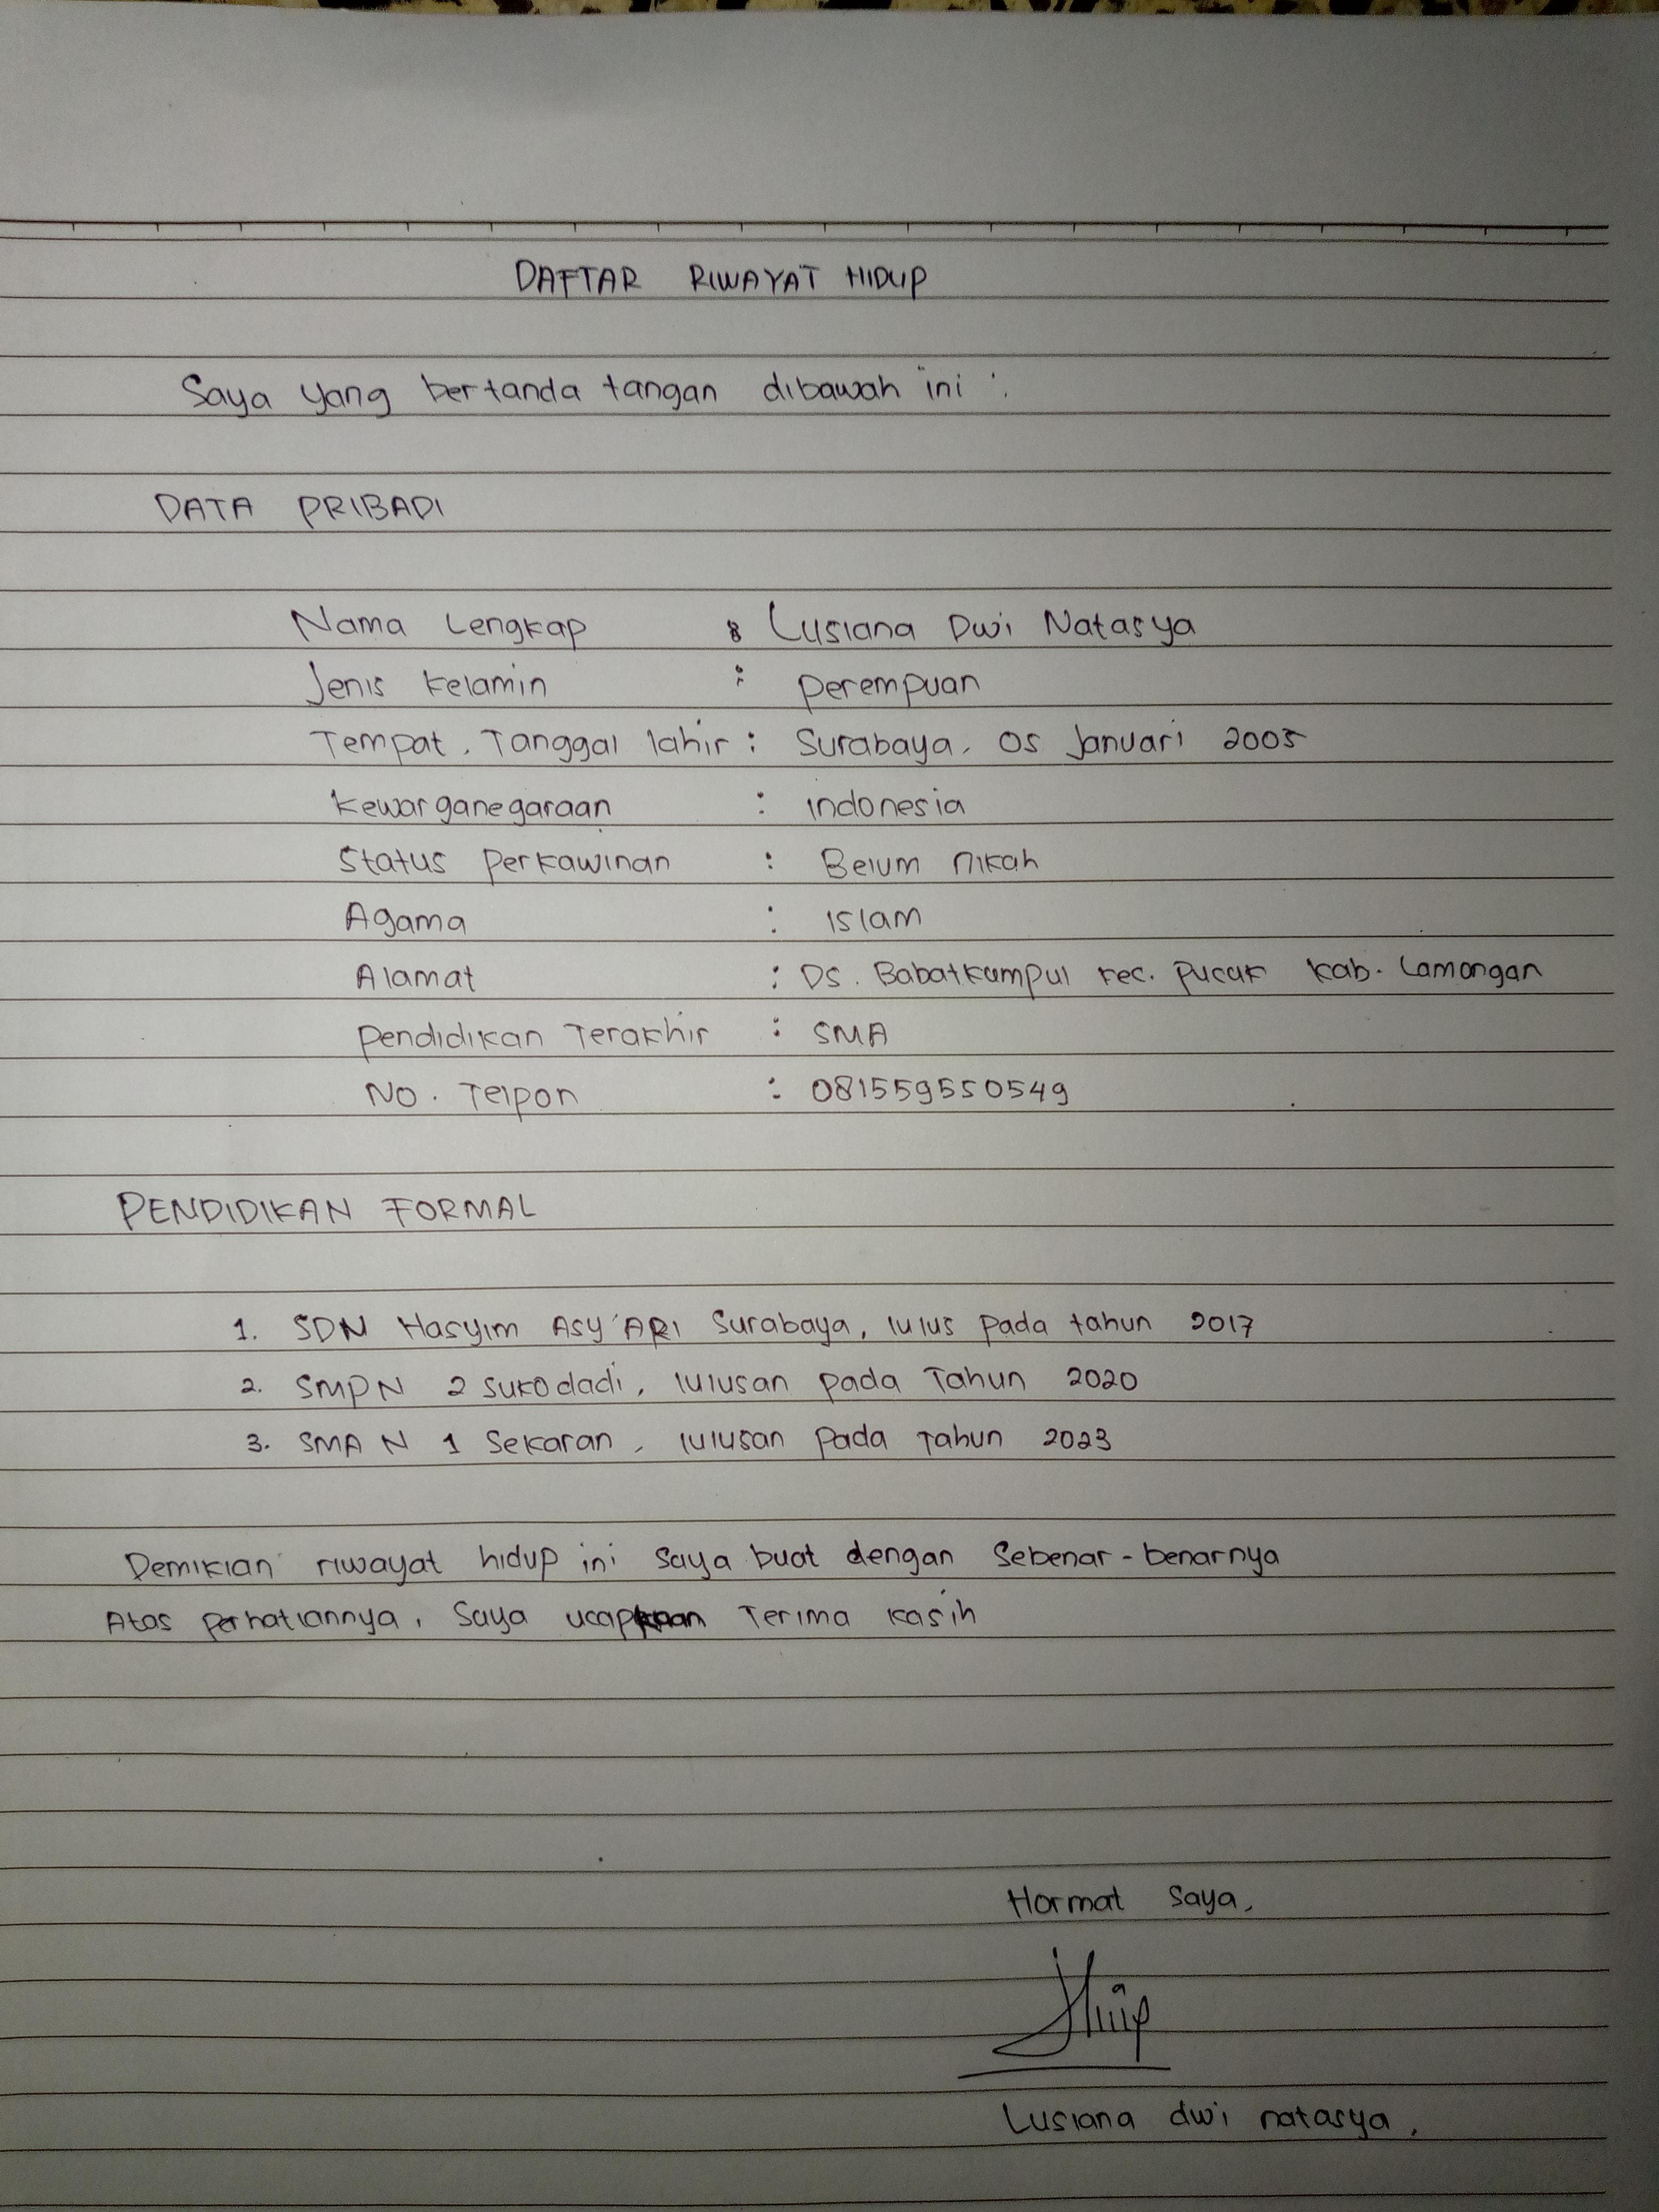 DAFTAR RIWAYAT HIDUP
Saya yang bertanda tangan dibawah ini :
DATA PRIBADI
Nama Lengkap : Lusiana Dwi Natasya
Jenis Kelamin : Perempuan
Tempat, Tanggal lahir : Surabaya, 05 Januari 2005
Kewarganegaraan : Indonesia
Status Perkawinan : Belum nikah
Agama : Islam
Alamat : Ds. Babatkumpul kec. Pucuk Kab. Lamongan
Pendidikan Terakhir : SMA
No. Telpon : 081559550549
PENDIDIKAN FORMAL
1. SDN Hasyim Asy'ARI Surabaya, lulus pada tahun 2017
2. SMPN 2 Sukodadi, lulusan pada Tahun 2020
3. SMA N 1 Sekaran, lulusan pada Tahun 2023
Demikian riwayat hidup ini saya buat dengan Sebenar-benarnya
Atas perhatiannya, Saya ucapkan Terima kasih
Hormat Saya,
Lusiana dwi natasya,